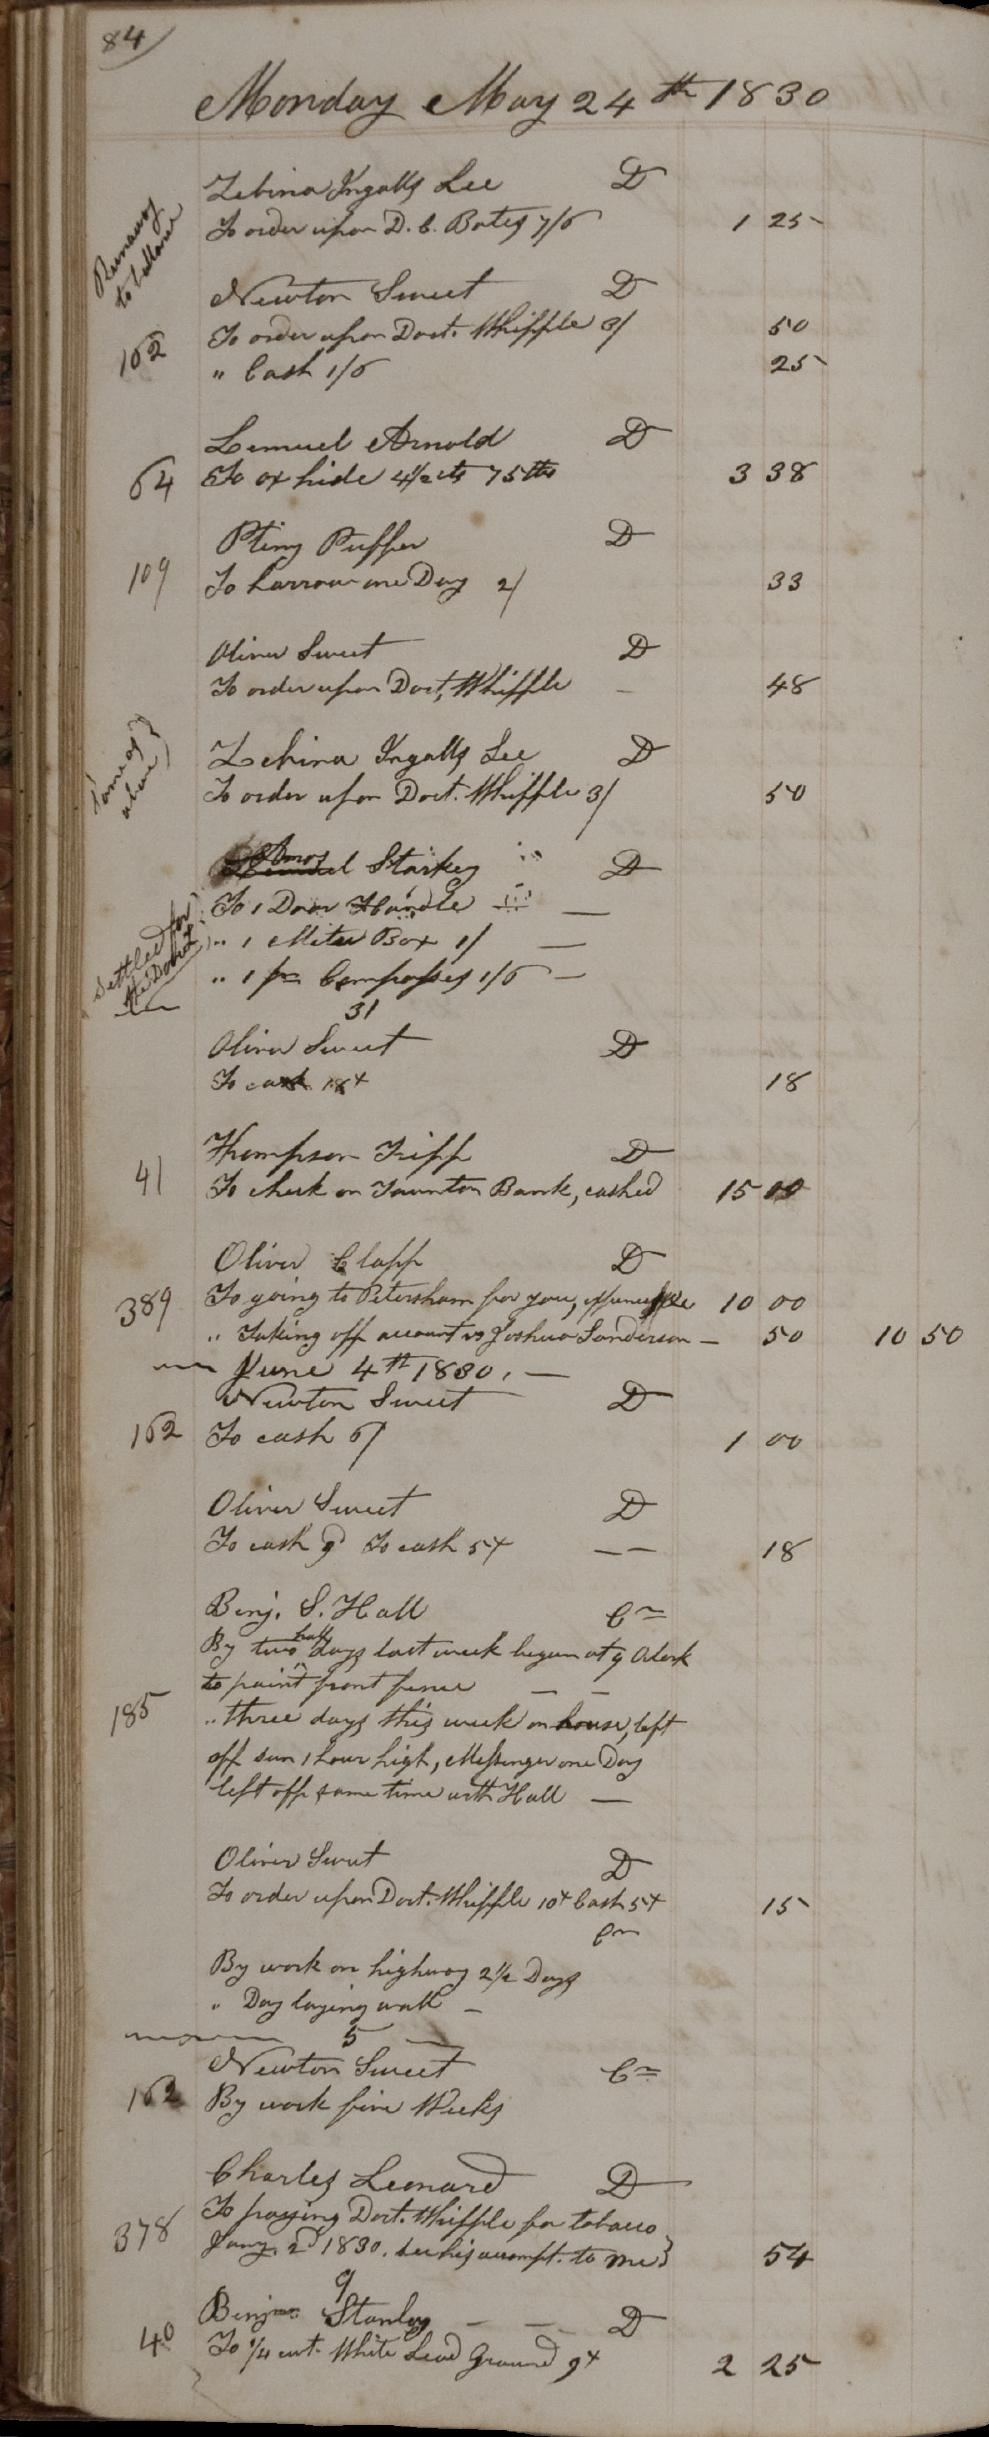 84
Monday May 24th 1830
Zebina Ingalls Lee D
Runaway
to ballance
To order upon D. C. Bates 7/6 1 25
Newton Sweet D
162
To order upon Doct. Whipple 3/ 50
" Cash 1/6 25
Lemuel Arnold D
64 To ox hide 4 1/2 cts 75 cts 3 38
Pliny Puffer D
109 To harrow one Day 2/ 33
Oliver Sweet D
To order upon Doct, Whipple – 48
Zebina Ingalls Lee D
Same as
above
To order upon Doct. Whipple 3/ 50
Amos
Starkey D
Settled for
To 1 Door Handle —
" 1 Miter Box 1/ —
" 1 pr Compasses 1/6 —
31
Oliver Sweet D
To cash 18 18
Thompson Tripp D
41 To check on Taunton Bank, cashed 15 00
Oliver Clapp D
389 To going to Petersham for you, 10 00
" Taking off account vs Joshua Sanderson – 50 10 50
June 4th 1830. —
Newton Sweet D
162 To cash 6/ 1 00
Oliver Sweet D
To cash 9d To cash 5+ — — 18
Benj. S. Hall Cr
By two half days last week began at 9 Oclock
to paint front fence — —
185
" three days this week on house, left
off sun 1 hour high, Messenger one Day
left off same time with Hall —
Oliver Sweet D
To order upon Doct. Whipple 10+ Cash 5+ 15
Cr
By work on highway 2 1/2 Days
" Day laying wall –
5
Newton Sweet Cr
162 By work five Weeks
Charles Leonard D
378
To paying Doct. Whipple for tobacco
Jany. 2d 1830. see his accompt. to me} 54
9
Benjmn Stanley — — D
40 To 1/4 cwt. White Lead Ground 9+ 2 25